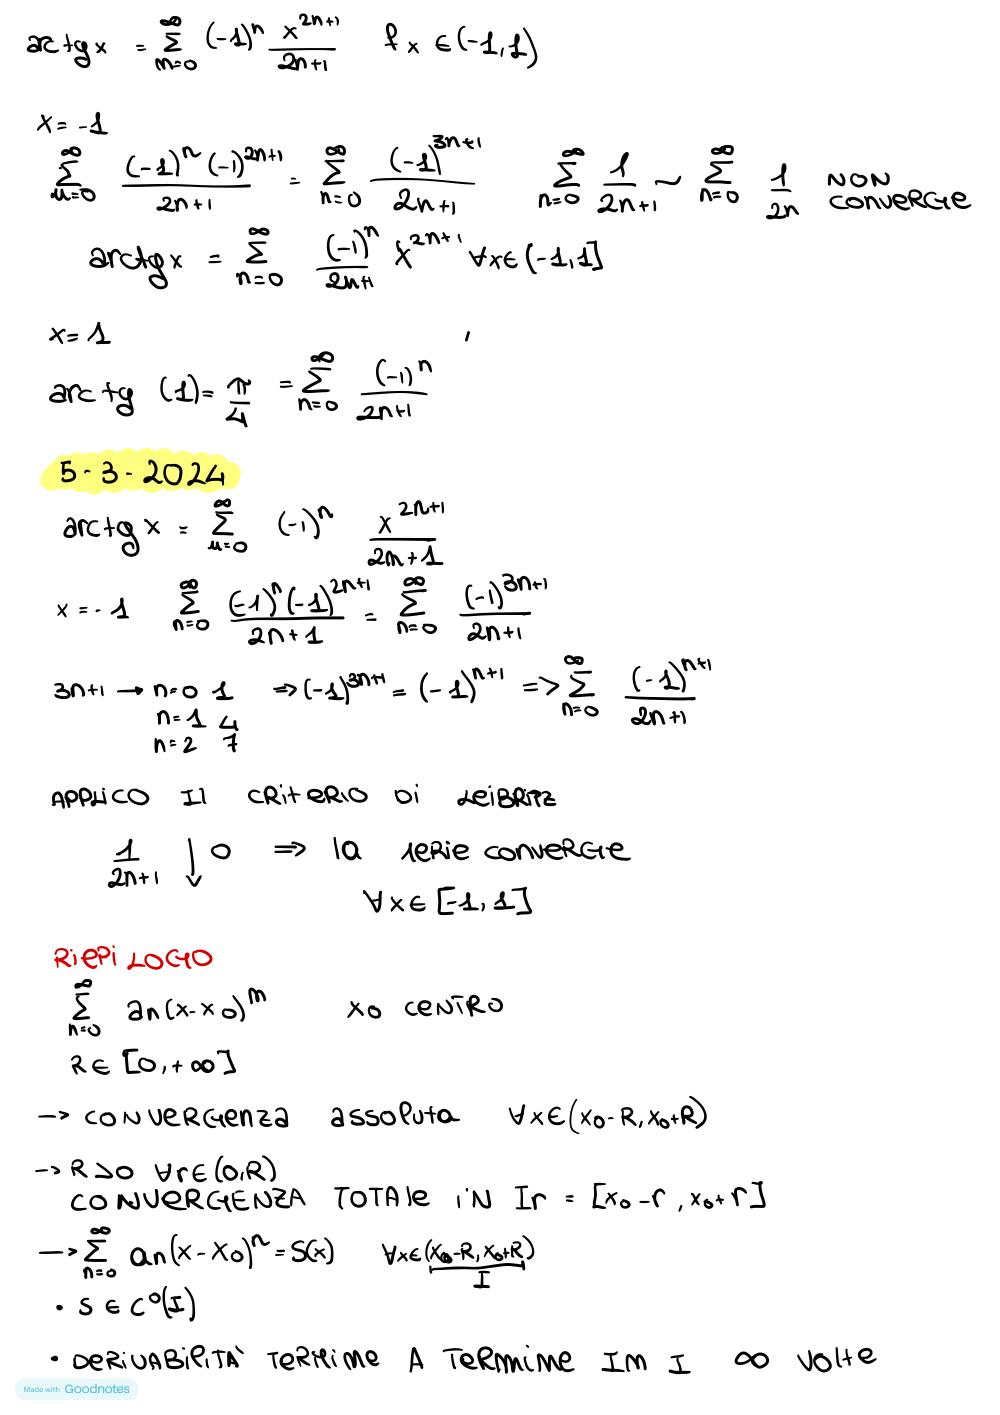 arctg x = ∑_{n=0}^{∞} (-1)^n x^{2n+1}/2n+1 f x ∈ (-1,1)
x = -1
∑_{n=0}^{∞} (-1)^n (-1)^{2n+1}/2n+1 = ∑_{n=0}^{∞} (-1)^{3n+1}/2n+1 ∑_{n=0}^{∞} 1/2n+1 ~ ∑_{n=0}^{∞} 1/2n NON CONVERGE
arctg x = ∑_{n=0}^{∞} (-1)^n/2n+1 x^{2n+1} ∀x∈(-1,1]
x = 1
arctg (1) = π/4 = ∑_{n=0}^{∞} (-1)^n/2n+1
5-3-2024
arctg x = ∑_{n=0}^{∞} (-1)^n x^{2n+1}/2n+1
x = -1 ∑_{n=0}^{∞} (-1)^n (-1)^{2n+1}/2n+1 = ∑_{n=0}^{∞} (-1)^{3n+1}/2n+1
3n+1 → n=0 1 ⇒ (-1)^{3n+1} = (-1)^{n+1} => ∑_{n=0}^{∞} (-1)^{n+1}/2n+1
n=1 4
n=2 7
APPLICO Il CRITERIO DI LEIBNITZ
1/2n+1 ↓ 0 ⇒ la serie CONVERGE
∀x∈[-1,1]
RIEPILOGO
∑_{n=0}^{∞} an(x-x0)^n x0 CENTRO
R∈ [0,+∞]
→ CONVERGENZA assoluta ∀x∈(x0-R, x0+R)
→ R>0 ∀r∈(0,R)
CONVERGENZA TOTAle iN Ir = [x0-r, x0+r]
→ ∑_{n=0}^{∞} an(x-x0)^n = S(x) ∀x∈(x0-R, x0+R)
I
• S ∈ C^0(I)
• DERIVABILITÀ TERMINE A TERMINE IN I ∞ VOLTE
Made with Goodnotes